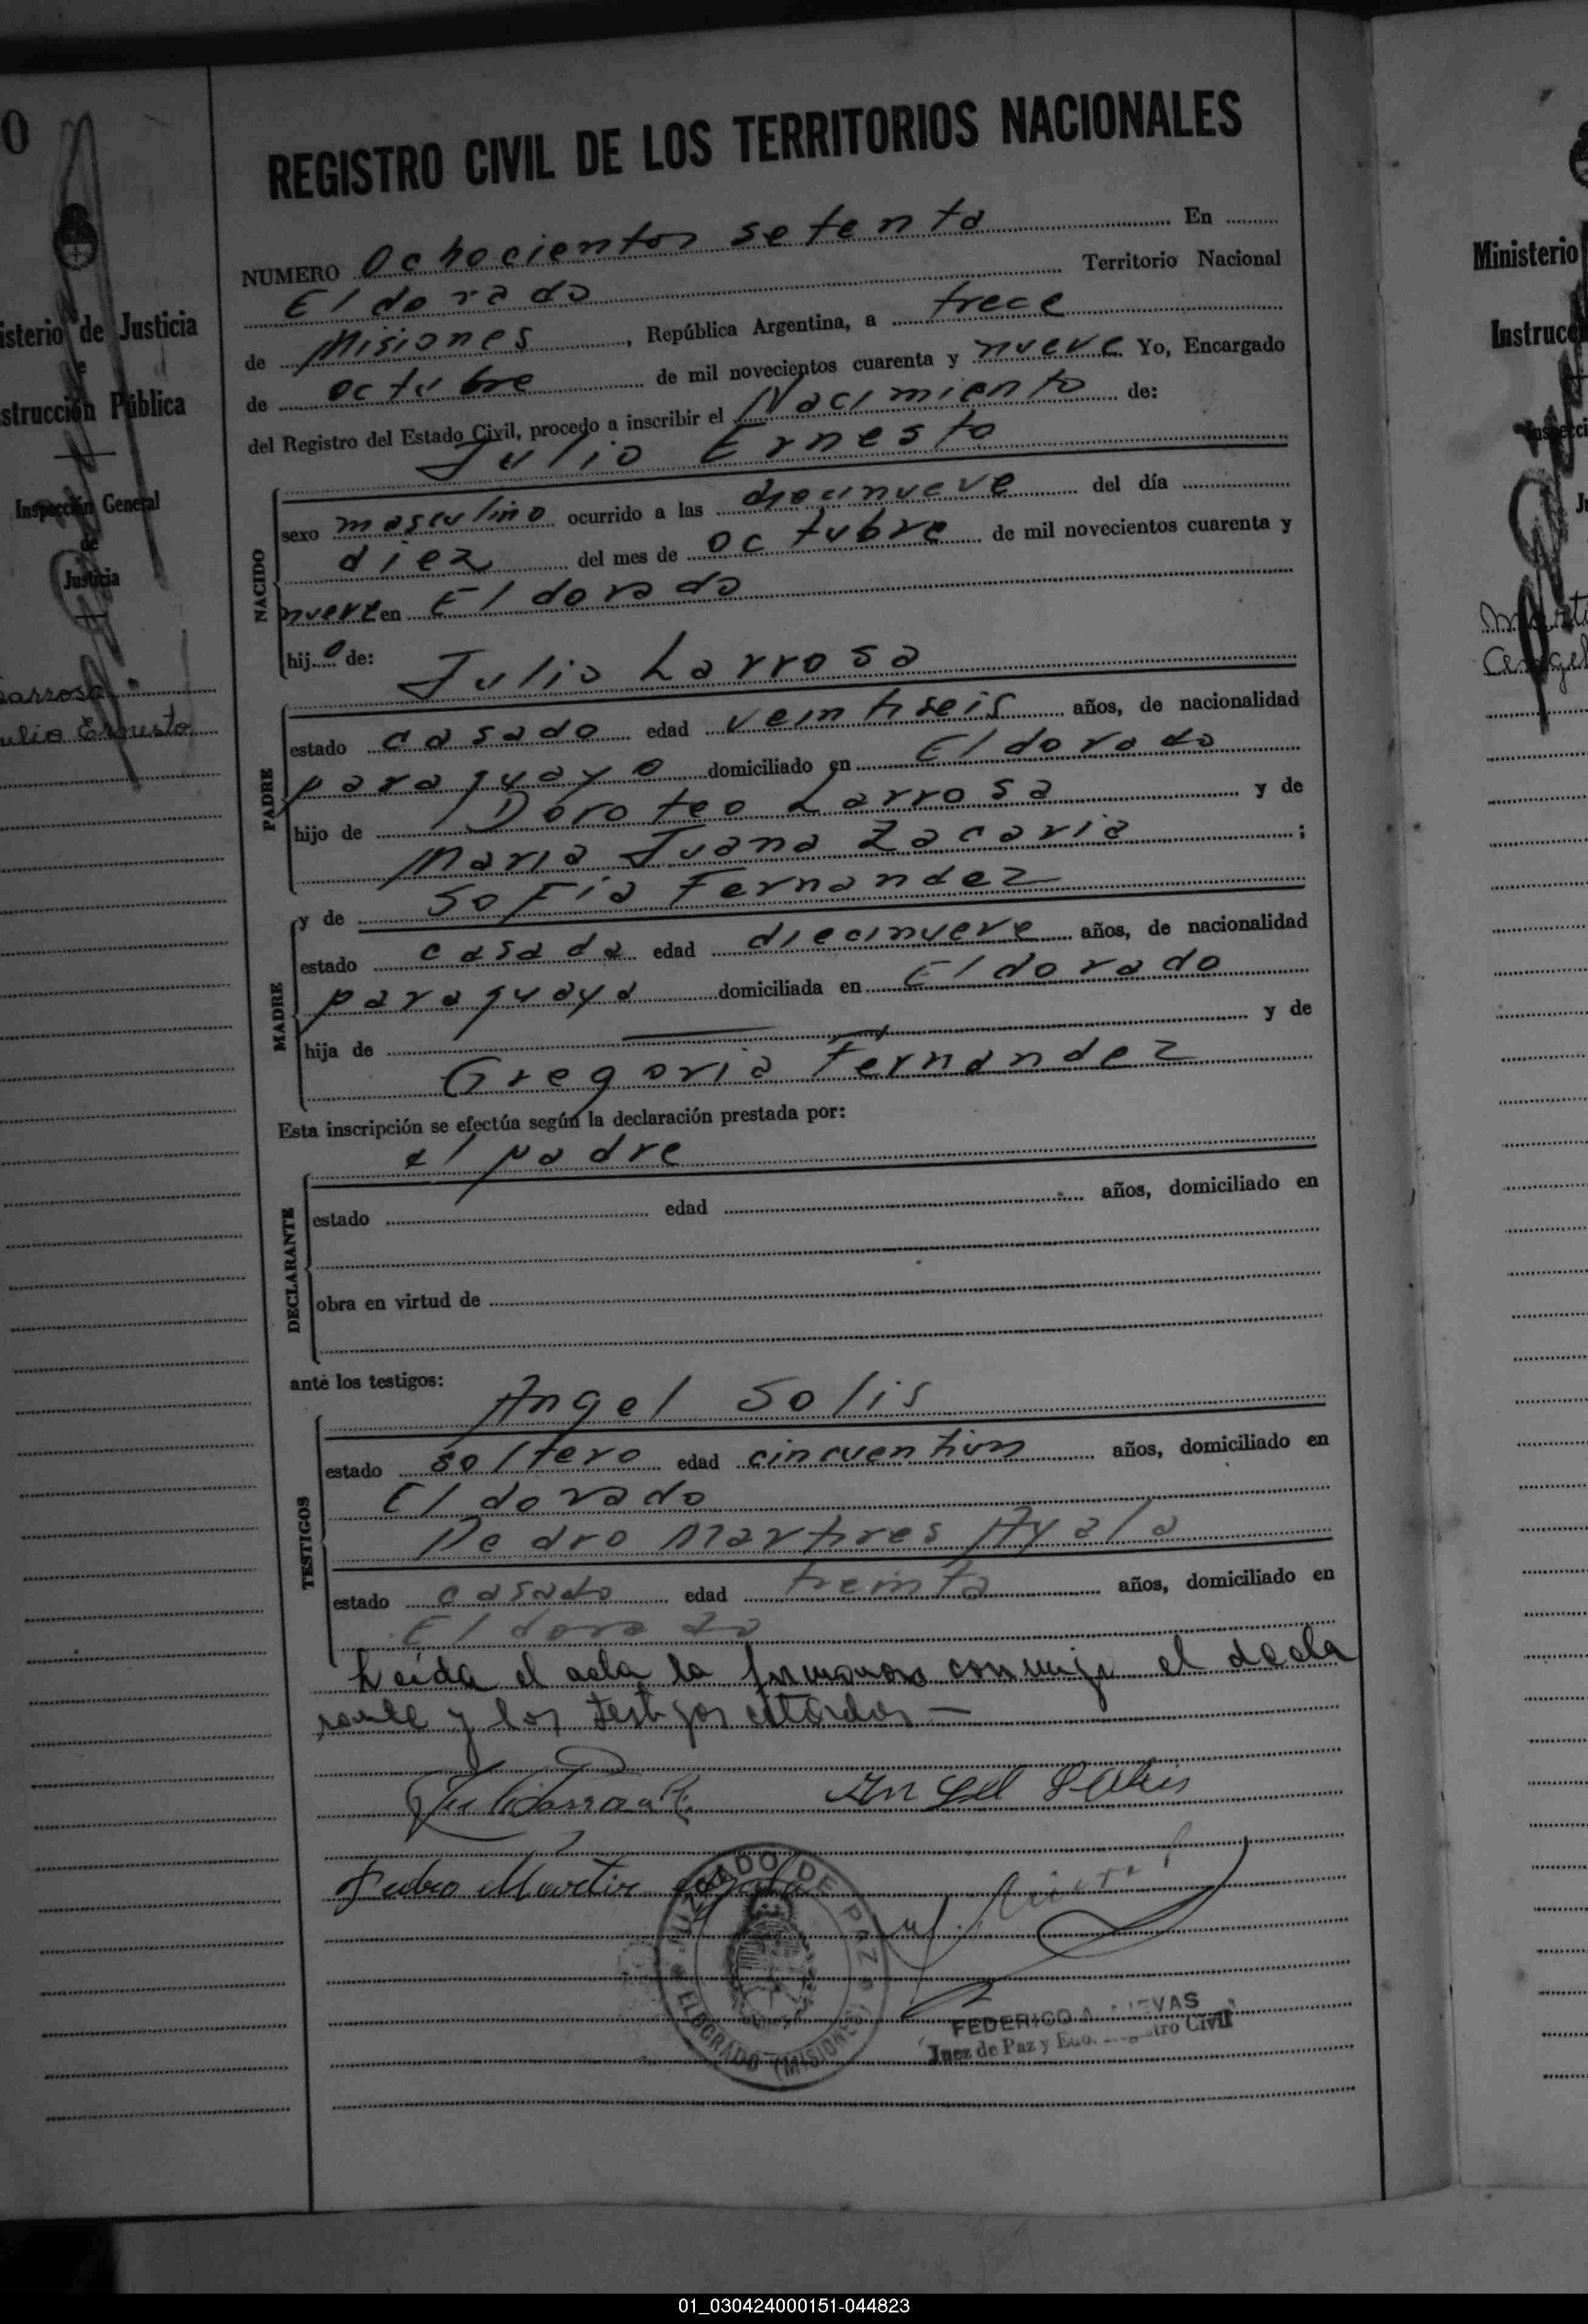 0
isterio de Justicia
e
strucción Pública
Inspección General
de
Justicia
Larrosa
ulio Ernesto
REGISTRO CIVIL DE LOS TERRITORIOS NACIONALES
NUMERO Ochocientos setenta En
Eldorado Territorio Nacional
de Misiones, República Argentina, a trece
de octubre de mil novecientos cuarenta y nueve Yo, Encargado
del Registro del Estado Civil, procedo a inscribir el Nacimiento de:
Julio Ernesto
NACIDO
sexo masculino ocurrido a las diecinueve del día
diez del mes de octubre de mil novecientos cuarenta y
nueve en Eldorado
hijo de: Julio Larrosa
PADRE
estado casado edad veintiseis años, de nacionalidad
paraguayo domiciliado en Eldorado
hijo de Doroteo Larrosa y de
Maria Juana Zacaria ;
y de Sofia Fernandez
MADRE
estado casada edad diecinueve años, de nacionalidad
paraguaya domiciliada en Eldorado
hija de — y de
Gregoria Fernandez
Esta inscripción se efectúa según la declaración prestada por:
el padre
DECLARANTE
estado edad años, domiciliado en
obra en virtud de
ante los testigos: Angel Solis
TESTIGOS
estado soltero edad cincuentiun años, domiciliado en
Eldorado
Pedro Martires Ayala
estado casado edad treinta años, domiciliado en
Eldorado
Leida el acta la firmaron conmigo el decla
rante y los testigos citados —
Angel Solis
Pedro Martir Ayala
JUZGADO DE PAZ
ELDORADO (MISIONES)
FEDERICO A.
Juez de Paz y Registro Civil
Ministerio
Instrucc
01_030424000151-044823